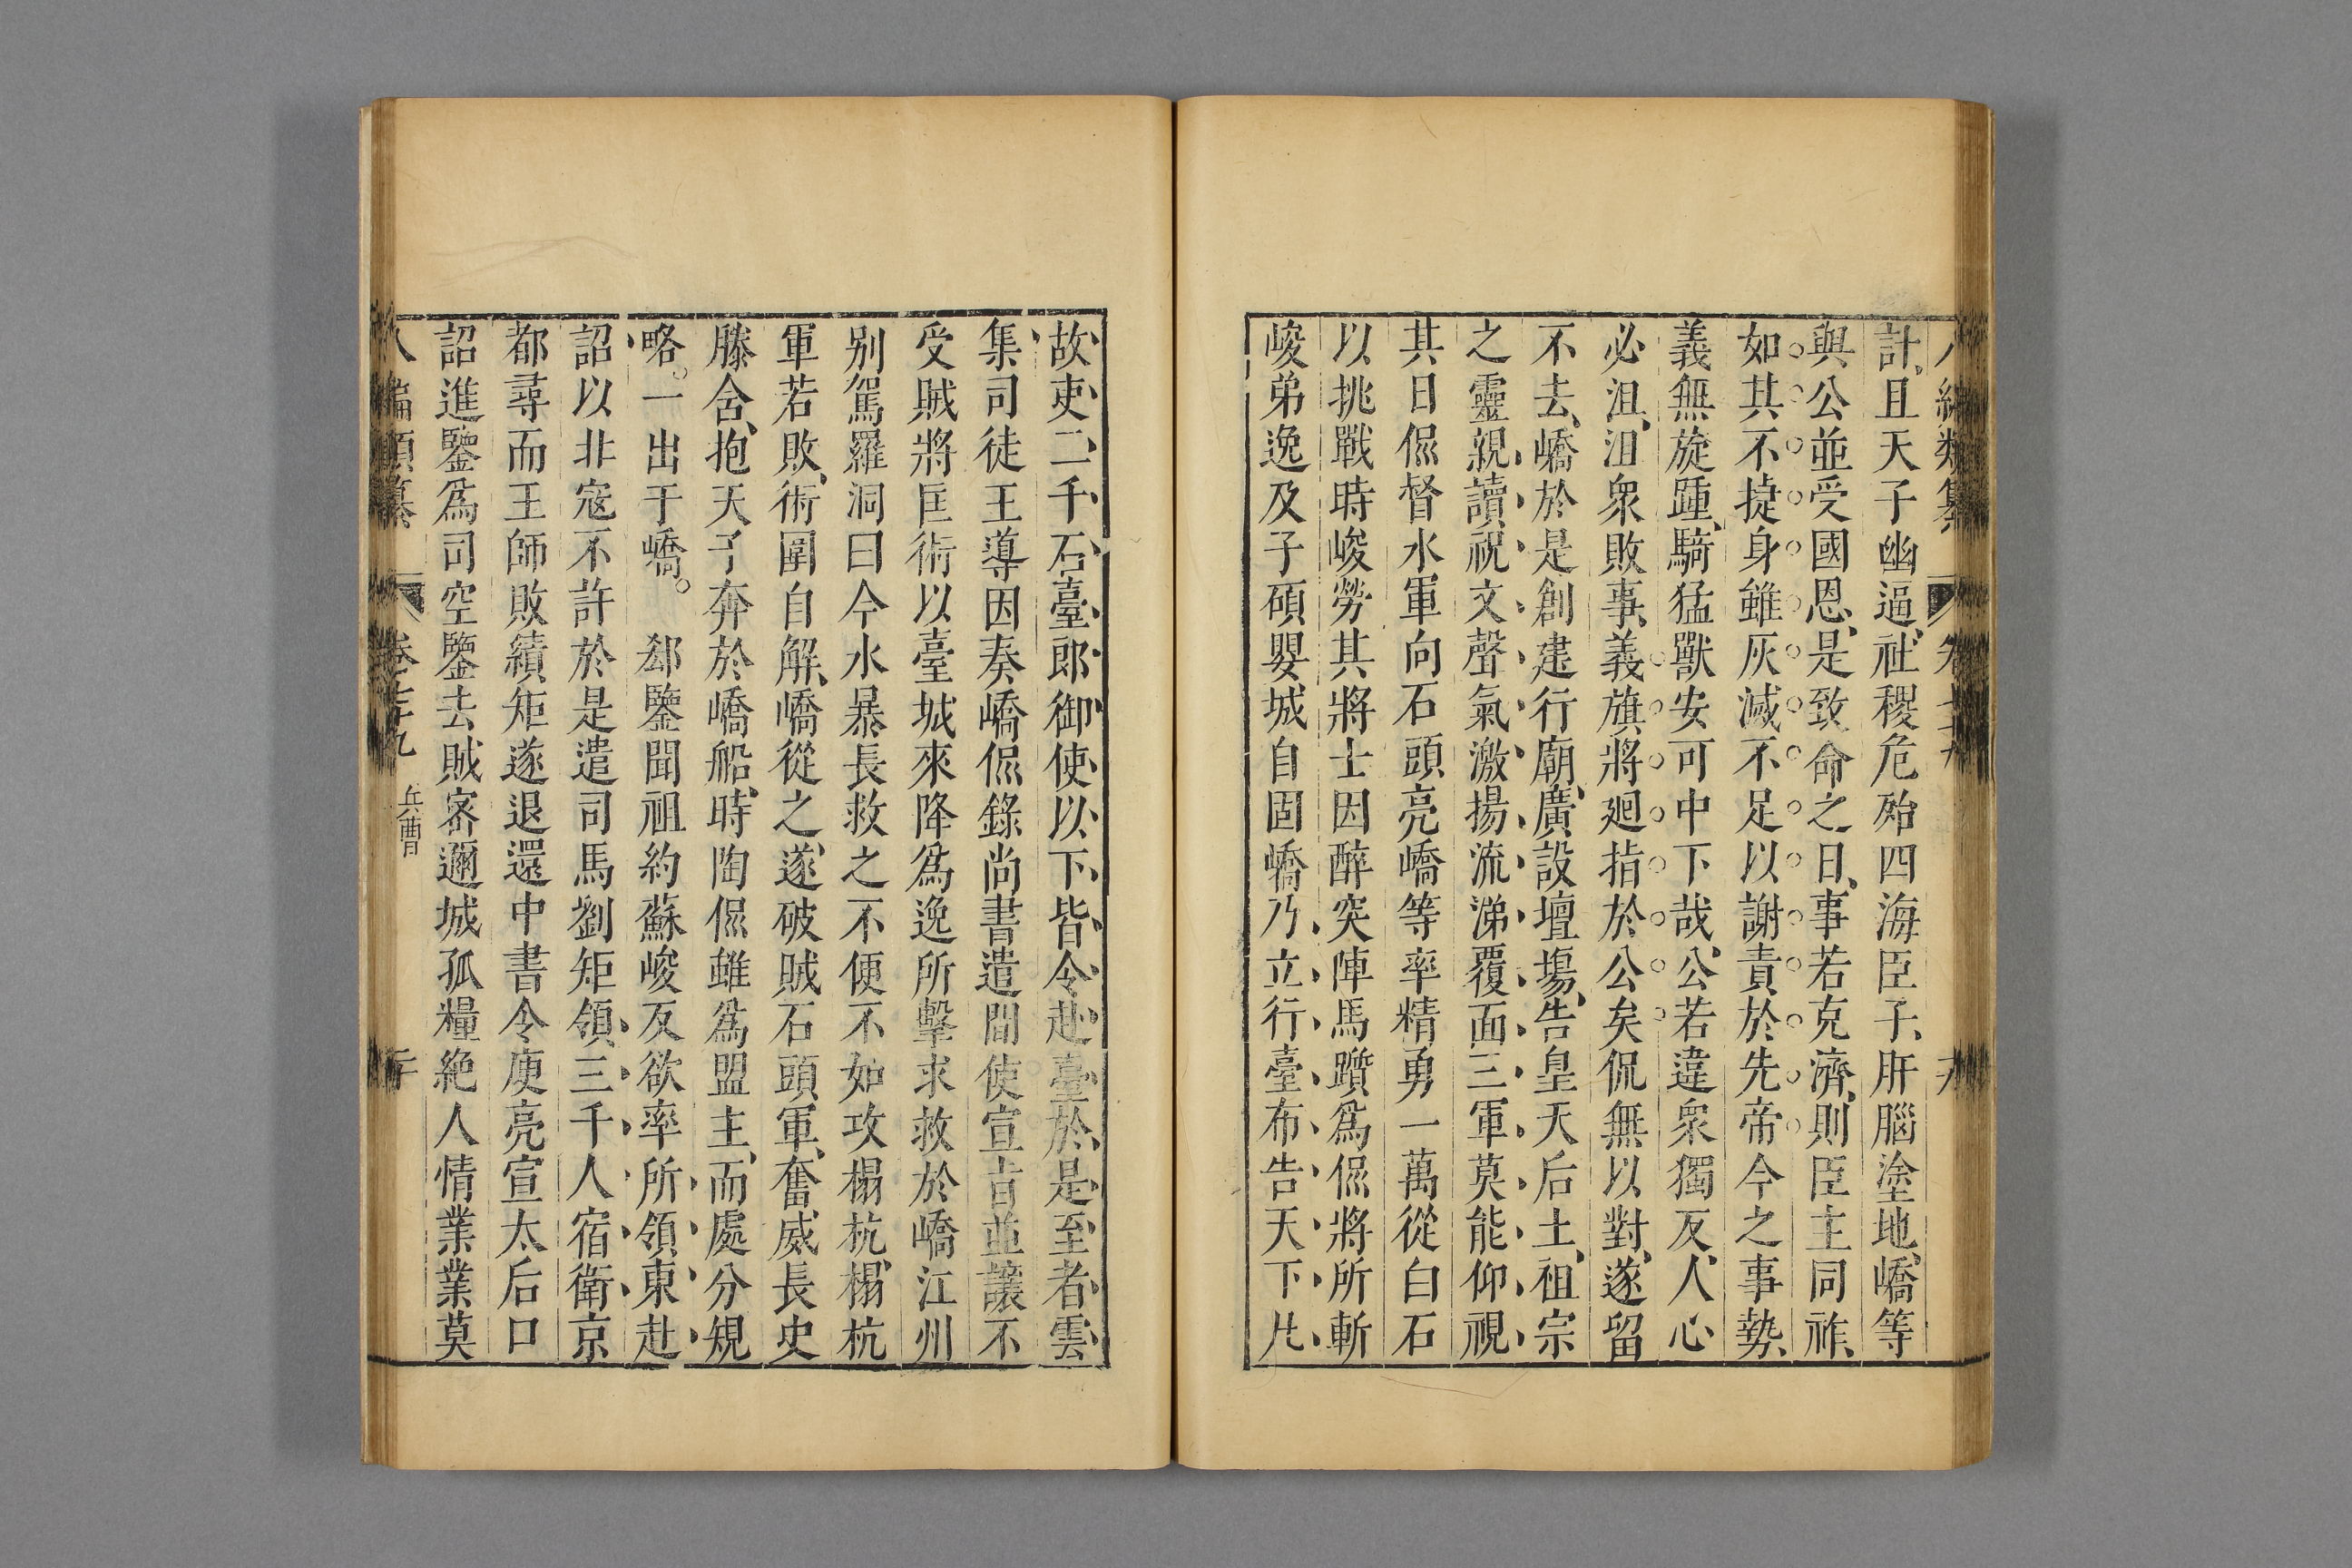 計且天子幽逼社稷危殆四海臣子肝腦塗地嶠等
與公並受國恩是致命之日事若克濟則臣主同祚
如其不捷身雖灰滅不足以謝責於先帝今之事勢
義無旋踵騎猛獸安可中下哉公若違衆獨反人心
必沮沮衆敗事義旗將廻指於公矣侃無以對遂留
不去嶠於是創建行廟廣設壇場告皇天后土祖宗
之靈親讀祝文聲氣激揚流涕覆面三軍莫能仰視
其日侃督水軍向石頭亮嶠等率精勇一萬從白石
以挑戰時峻勞其將士因醉突陣馬躓爲侃將所斬
峻弟逸及子碩嬰城自固嶠乃立行臺布告天下凡
故吏二千石臺郎御使以下皆令赴臺於是至者雲
集司徒王導因奏嶠侃錄尚書遣間使宣旨並讓不
受賊將匡術以臺城來降爲逸所擊求救於嶠江州
别駕羅洞曰今水暴長救之不便不如攻榻杭榻杭
軍若敗術圍自解嶠從之遂破賊石頭軍奮威長史
滕含抱天子奔於嶠船時陶侃雖爲盟主而處分規
略一出于嶠 郄鑒聞祖約蘇峻反欲率所領東赴
詔以非寇不許於是遣司馬劉矩領三千人宿衛京
都尋而王師敗績矩遂退還中書令庾亮宣太后口
詔進鑒爲司空鑒去賊宻邇城孤糧絶人情業業莫
八編類纂 卷七十九 兵曹 二十